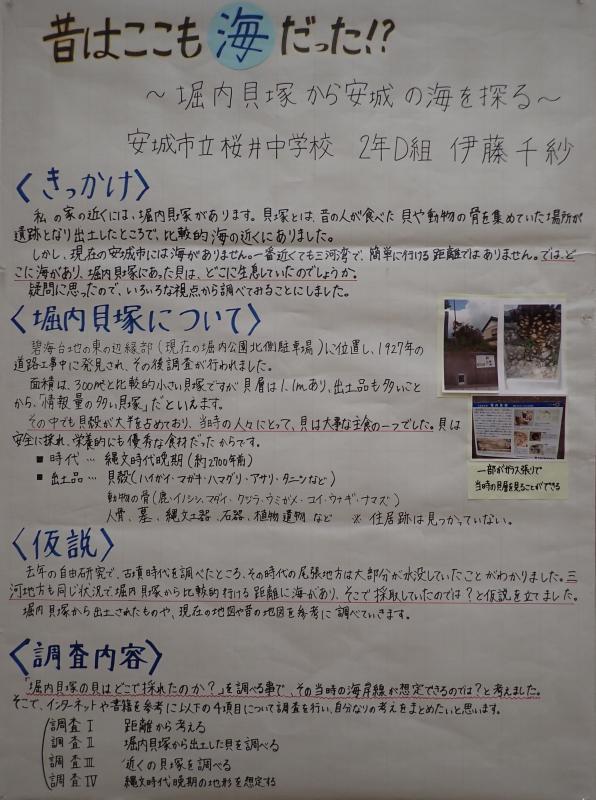 昔はここも海だった!?
～堀内貝塚から安城の海を探る～
安城市立桜井中学校 2年D組 伊藤千紗
〈きっかけ〉
私の家の近くには、堀内貝塚があります。貝塚とは、昔の人が食べた貝や動物の骨を集めていた場所が
遺跡となり出土したところで、比較的海の近くにありました。
しかし、現在の安城市には海がありません。一番近くても三河湾で、簡単に行ける距離ではありません。では、ど
こに海があり、堀内貝塚にあった貝は、どこに生息していたのでしょうか。
疑問に思ったので、いろいろな視点から調べてみることにしました。
〈堀内貝塚について〉
碧海台地の東の辺縁部(現在の堀内公園北側駐車場)に位置し、1927年の
道路工事中に発見され、その後調査が行われました。
面積は、300㎡と比較的小さい貝塚ですが貝層は1.1mあり、出土品も多いこと
から、「情報量の多い貝塚」だといえます。
その中でも貝殻が大半を占めており、当時の人々にとって、貝は大事な主食の一つでした。貝は
安全に採れ、栄養的にも優秀な食材だったからです。
■時代…縄文時代晩期(約2700年前)
■出土品…貝殻(ハイガイ・マガキ・ハマグリ・アサリ・タニシなど)
動物の骨(鹿・イノシシ、マダイ・クジラ・ウミガメ・コイ・ウナギ・ナマズ)
人骨、墓、縄文土器、石器、植物遺物など ※住居跡は見つかっていない。
一部がガラス張りで
当時の貝層を見ることができる
〈仮説〉
去年の自由研究で、古墳時代を調べたところ、その時代の尾張地方は大部分が水没していたことがわかりました。三
河地方も同じ状況で、堀内貝塚から比較的行ける距離に海があり、そこで採取していたのでは?と仮説を立てました。
堀内貝塚から出土されたものや、現在の地図や昔の地図を参考に調べていきます。
〈調査内容〉
「堀内貝塚の貝はどこで採れたのか?」を調べる事で、その当時の海岸線が想定できるのでは?と考えました。
そこで、インターネットや書籍を参考に以下の4項目について調査を行い、自分なりの考えをまとめたいと思います。
調査Ⅰ 距離から考える
調査Ⅱ 堀内貝塚から出土した貝を調べる
調査Ⅲ 近くの貝塚を調べる
調査Ⅳ 縄文時代晩期の地形を想定する